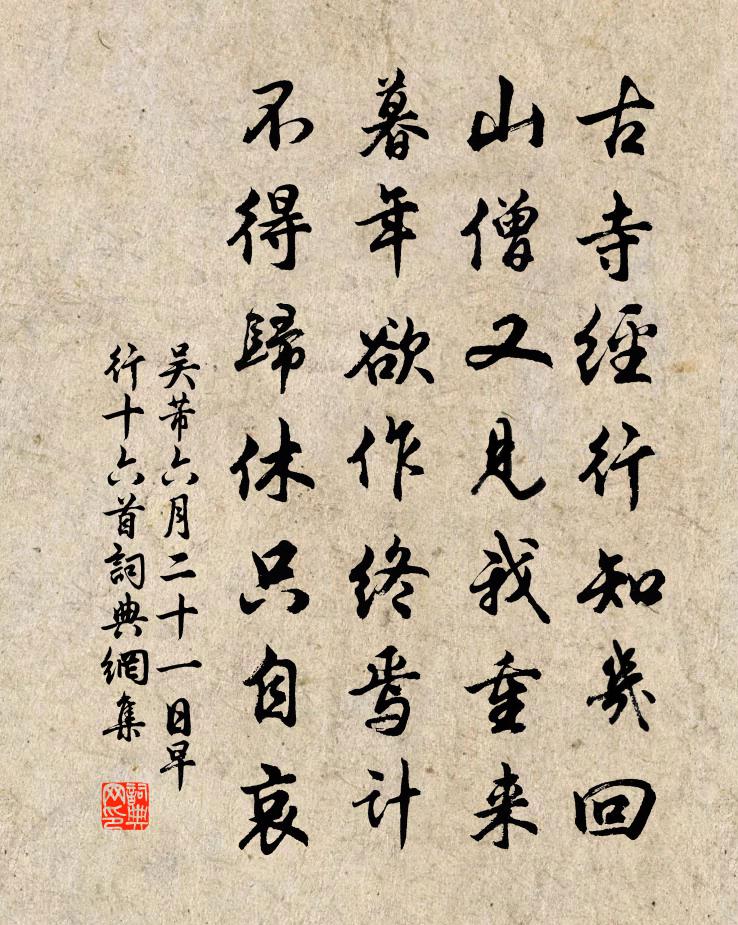 古寺經行知幾回
山僧又見我重来
暮年欲作終焉計
不得歸休只自哀
吳芾六月二十一日早
行十六首詞典網集
詞典
网印